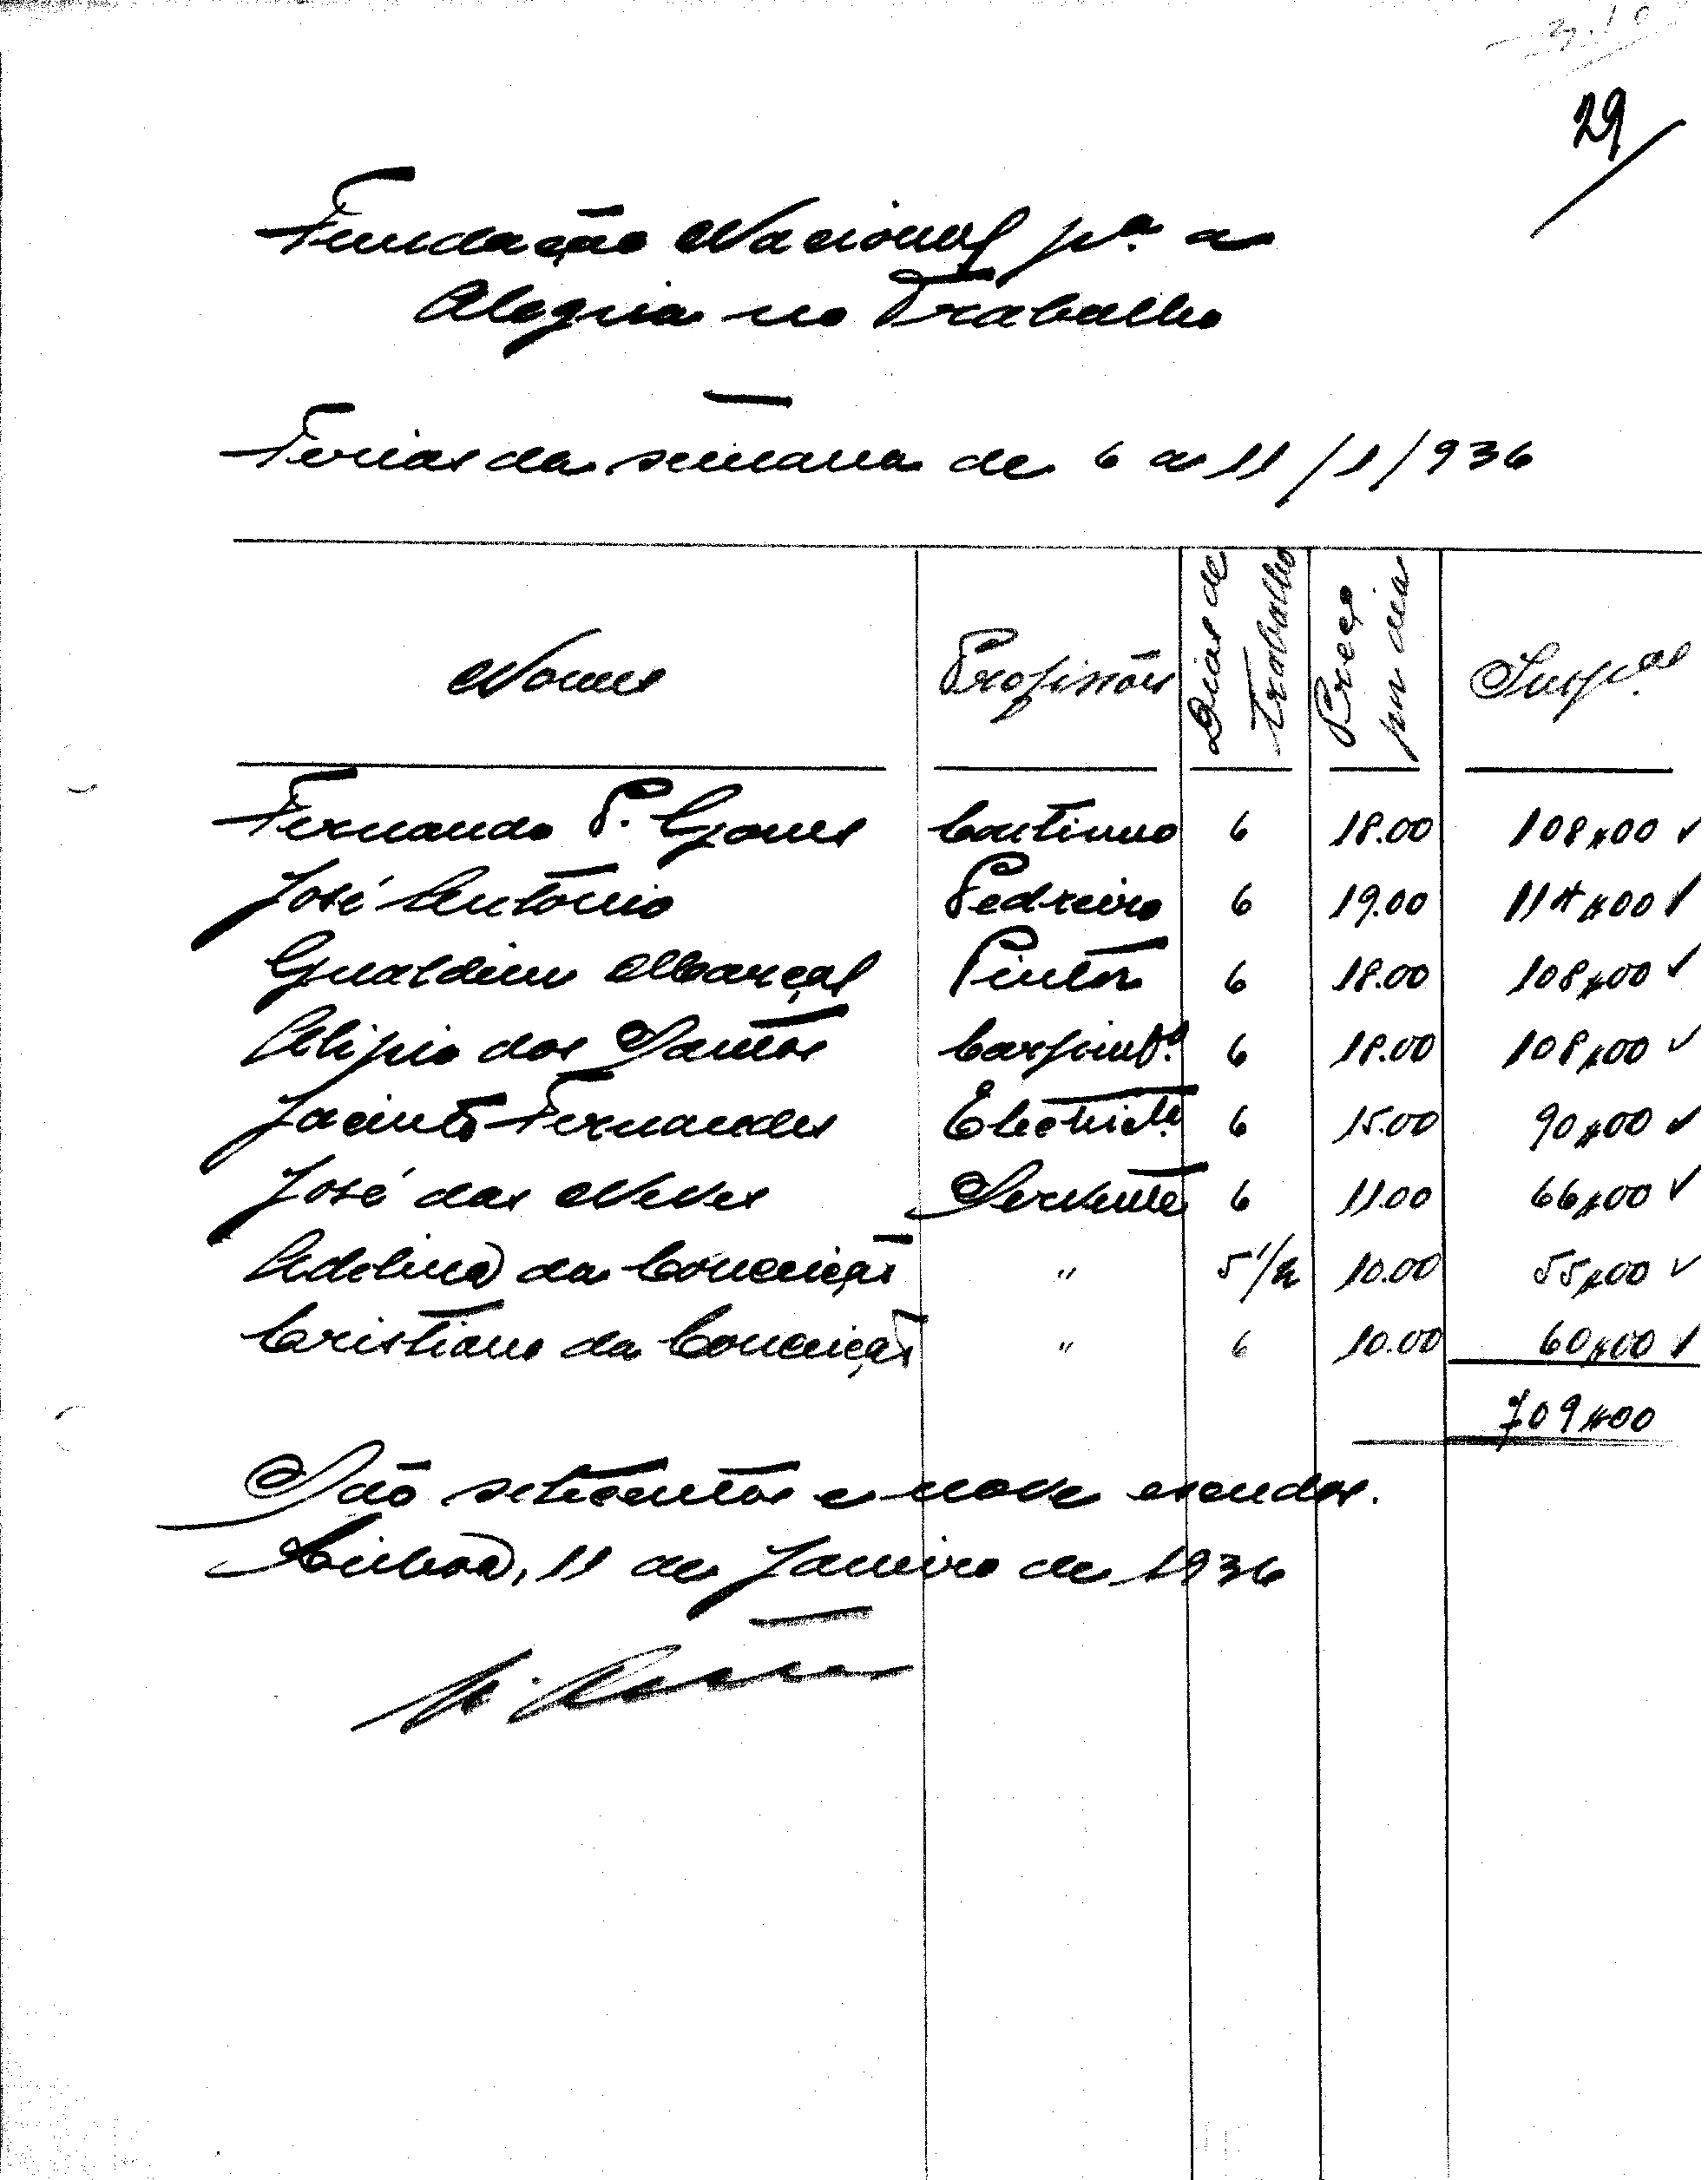 29
Fundação Nacional pª a
Alegria no Trabalho
Ferias da semana de 6 a 11/1/936
Nomes Profissões Dias de trabalho Preço por dia Imp.as
Fernando P. Gomes Contínuo 6 18.00 108$00
José António Pedreiro 6 19.00 114$00
Gualdim Marçal Pintor 6 18.00 108$00
Alipio dos Santos Carpint.º 6 18.00 108$00
Jacinto Fernandes Electric.ta 6 15.00 90$00
José das Neves Servente 6 11.00 66$00
Adelina da Conceição " 5 1/2 10.00 55$00
Cristiano da Conceição " 6 10.00 60$00
709$00
São setecentos e nove escudos.
Lisboa, 11 de Janeiro de 1936